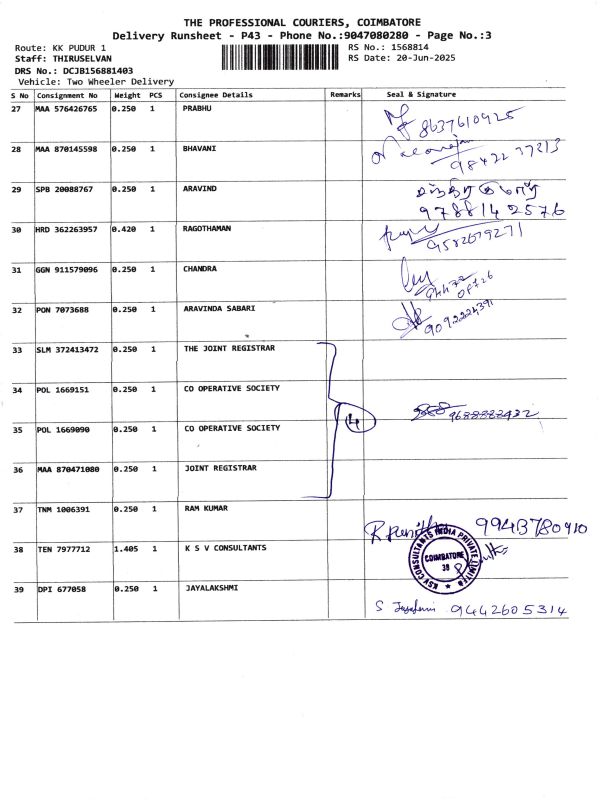 THE PROFESSIONAL COURIERS, COIMBATORE
Delivery Runsheet - P43 - Phone No.:9047080280 - Page No.:3
Route: KK PUDUR 1 RS No.: 1568814
Staff: THIRUSELVAN RS Date: 20-Jun-2025
DRS No.: DCJB156881403
Vehicle: Two Wheeler Delivery
S No Consignment No Weight PCS Consignee Details Remarks Seal & Signature
27 MAA 576426765 0.250 1 PRABHU 8637610425
28 MAA 870145598 0.250 1 BHAVANI 9842237213
29 SPB 20088767 0.250 1 ARAVIND
9788142576
30 HRD 362263957 0.420 1 RAGOTHAMAN
31 GGN 911579096 0.250 1 CHANDRA
32 PON 7073688 0.250 1 ARAVINDA SABARI 9092224391
33 SLM 372413472 0.250 1 THE JOINT REGISTRAR
34 POL 1669151 0.250 1 CO OPERATIVE SOCIETY
4
35 POL 1669090 0.250 1 CO OPERATIVE SOCIETY
36 MAA 870471080 0.250 1 JOINT REGISTRAR
37 TNM 1006391 0.250 1 RAM KUMAR
9943780910
38 TEN 7977712 1.405 1 K S V CONSULTANTS
KSV CONSULTANTS INDIA PRIVATE LIMITED
COIMBATORE
38
39 DPI 677058 0.250 1 JAYALAKSHMI
S 9442605314